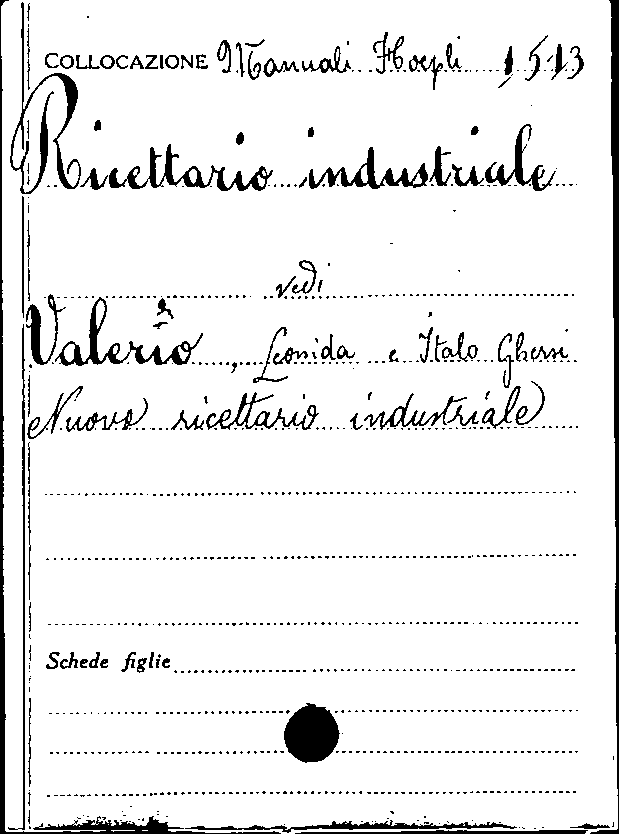 COLLOCAZIONE Manuali Hoepli 1513
Ricettario industriale
vedi
Valerio, Leonida e Italo Ghersi
Nuovo ricettario industriale
Schede figlie